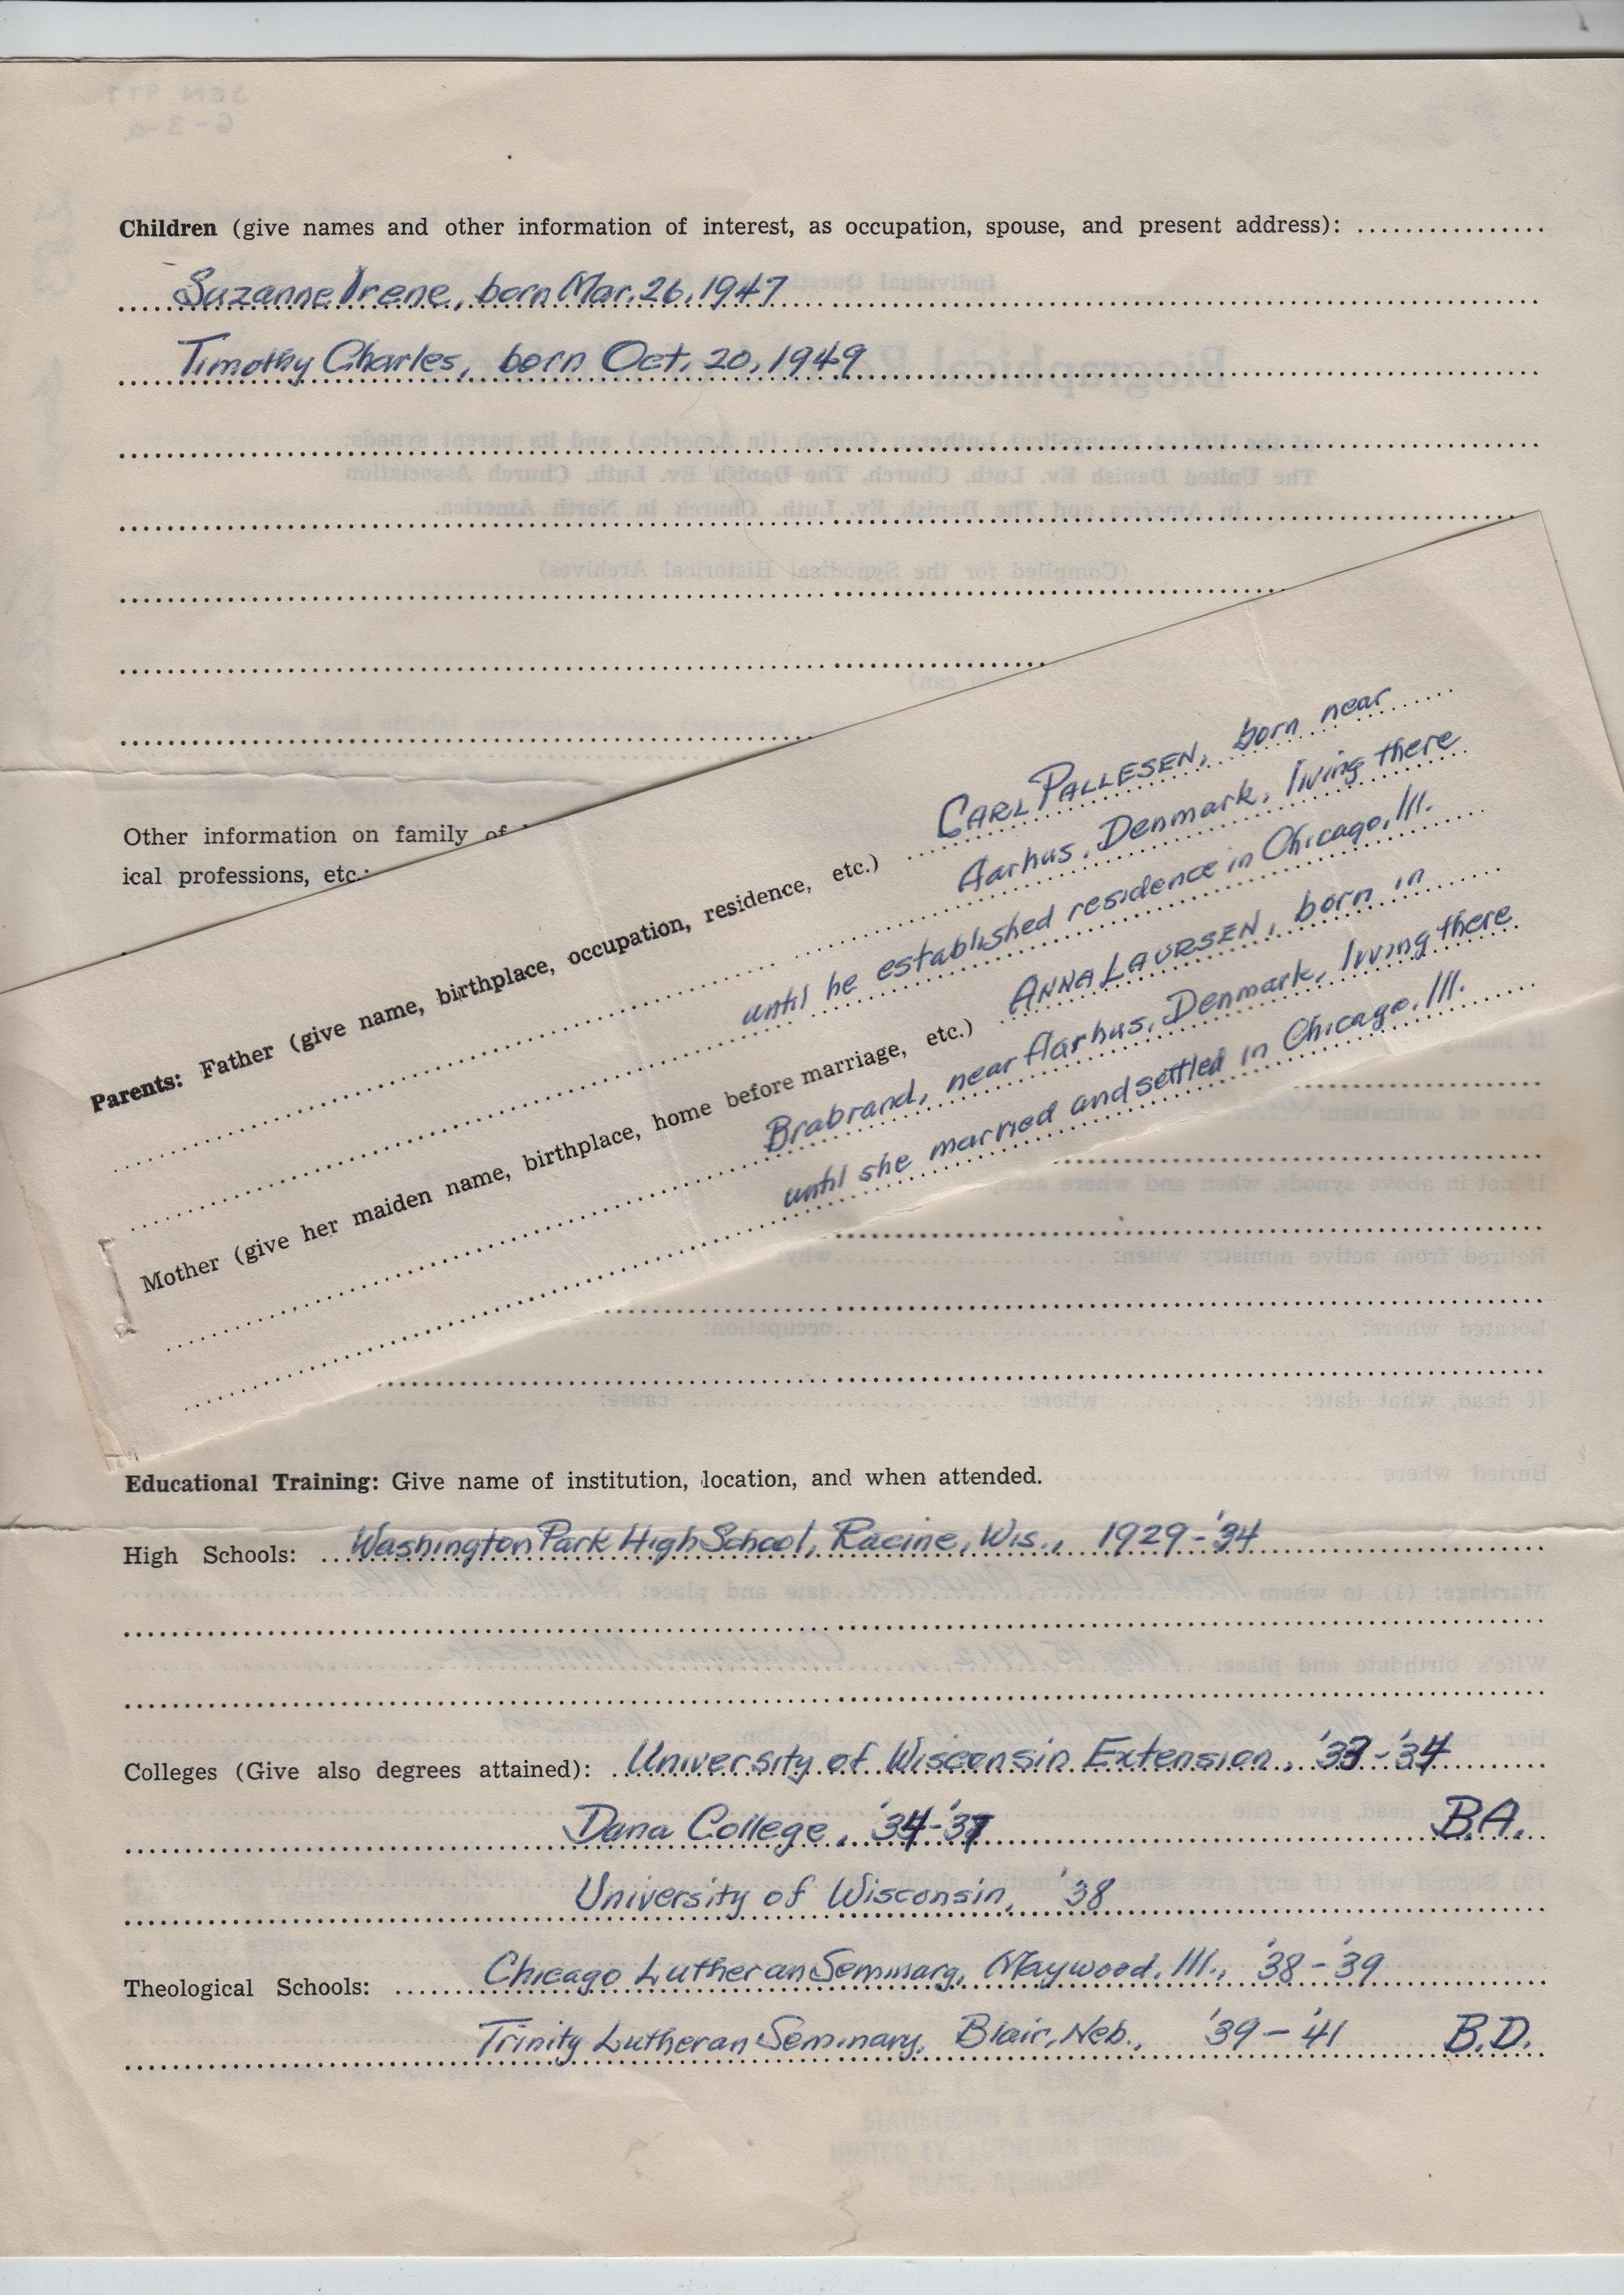 Children (give names and other information of interest, as occupation, spouse, and present address):
Suzanne Irene, born Mar. 26, 1947
Timothy Charles, born Oct. 20, 1949
Other information on family of
ical professions, etc.:
Parents: Father (give name, birthplace, occupation, residence, etc.) CARL PALLESEN, born near
Aarhus, Denmark, living there
until he established residence in Chicago, Ill.
Mother (give her maiden name, birthplace, home before marriage, etc.) ANNA LAURSEN, born in
Brabrand, near Aarhus, Denmark, living there
until she married and settled in Chicago, Ill.
Educational Training: Give name of institution, location, and when attended.
High Schools: Washington Park High School, Racine, Wis., 1929-'34
Colleges (Give also degrees attained): University of Wisconsin Extension, '33-'34
Dana College, '34-'37 B.A.
University of Wisconsin, '38
Theological Schools: Chicago Lutheran Seminary, Maywood, Ill., '38-'39
Trinity Lutheran Seminary, Blair, Neb., '39-'41 B.D.